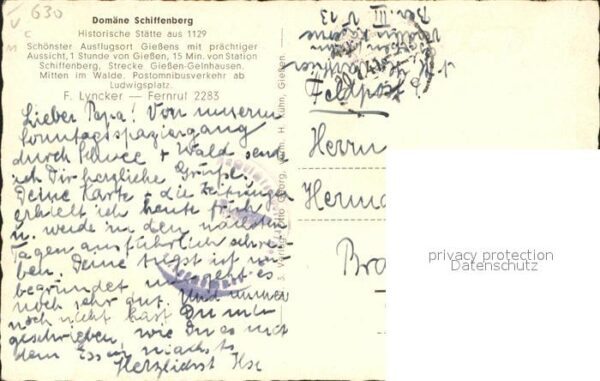 630
Domäne Schiffenberg
Historische Stätte aus 1129
Schönster Ausflugsort Gießens mit prächtiger
Aussicht, 1 Stunde von Gießen, 15 Min. von Station
Schiffenberg, Strecke Gießen-Gelnhausen.
Mitten im Walde. Postomnibusverkehr ab
Ludwigsplatz.
F. Lyncker — Fernruf 2283
Lieber Papa! Von unserm
Sonntagsspaziergang
durch Schnee + Wald sende
ich Dir herzliche Grüße.
Deine Karte + die Zeitungen
erhielt ich heute früh
u. werde in den nächsten
Tagen ausführlich schrei-
ben. Deine ist un-
begründet uns geht es
noch sehr gut. Und immer
noch nicht hast Du mir
geschrieben, wie Du es mit
dem Essen machst.
Herzlichst Ilse
Feldpost
Herrn
Bra
Kühn, Gießen
privacy protection
Datenschutz